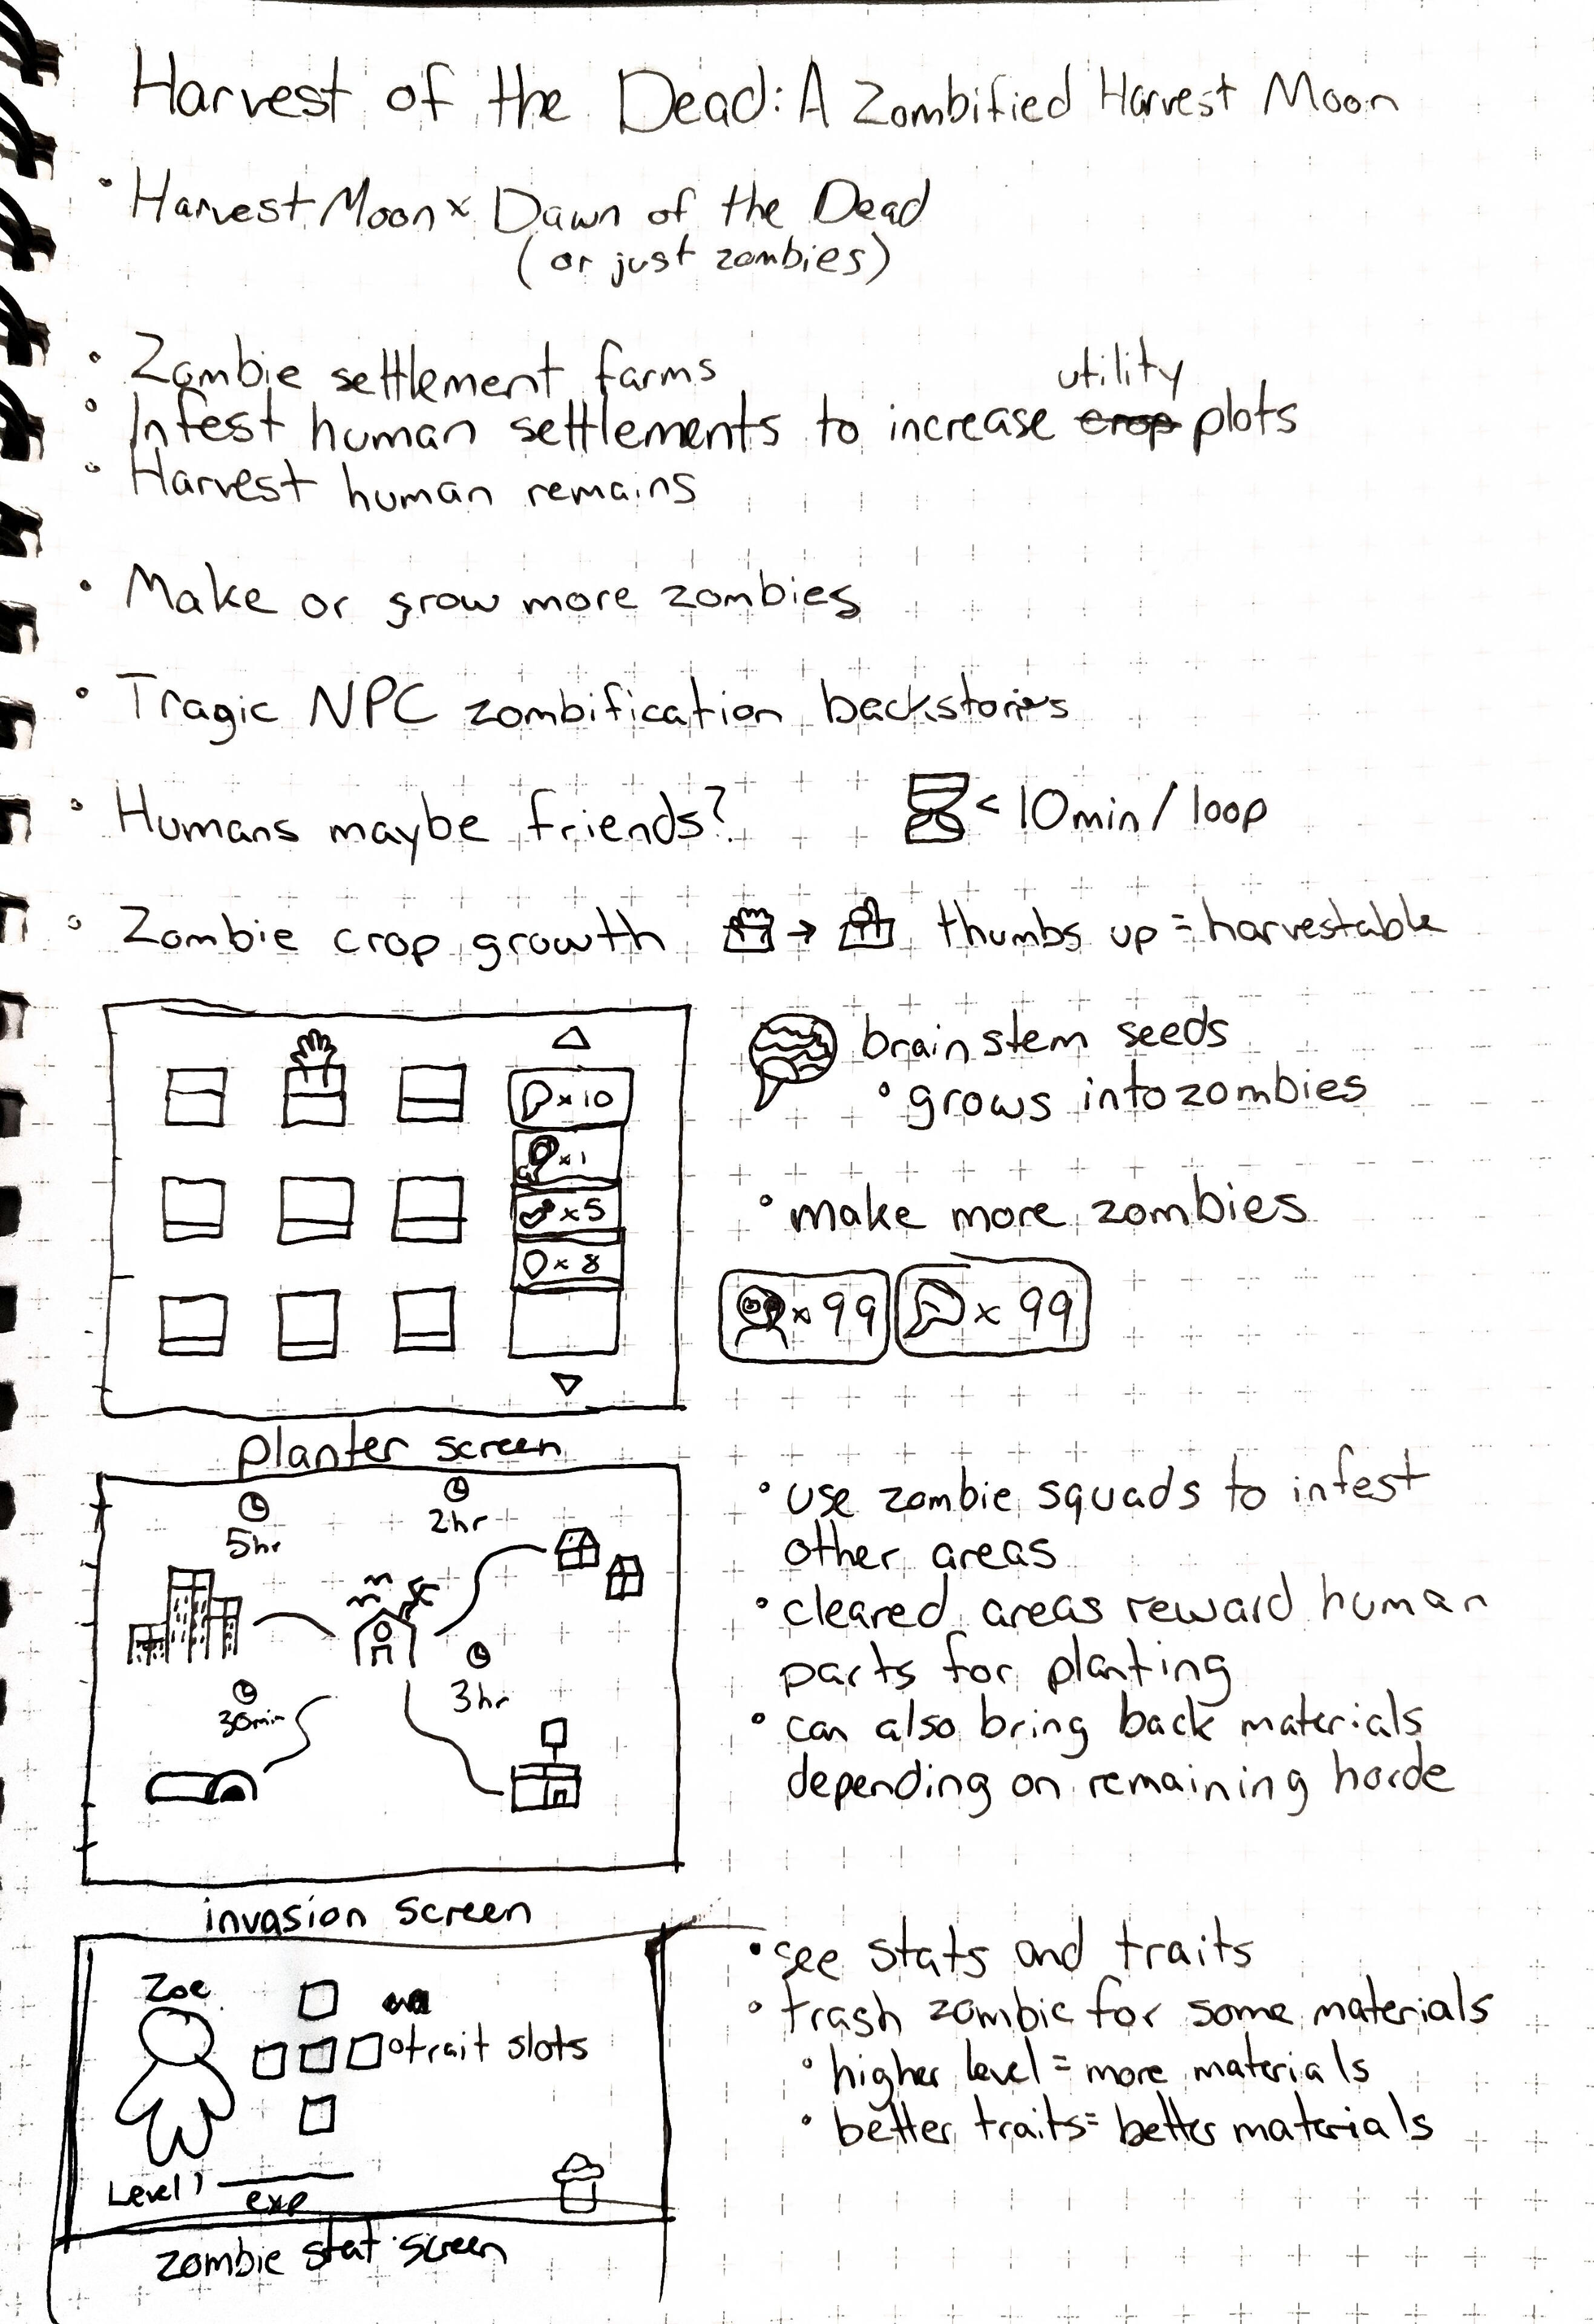 Harvest of the Dead: A Zombified Harvest Moon
• Harvest Moon x Dawn of the Dead
(or just zombies)
• Zombie settlement farms
utility
• Infest human settlements to increase crop plots
• Harvest human remains
• Make or grow more zombies
• Tragic NPC zombification backstories
• Humans maybe friends?
< 10min/loop
• Zombie crop growth → thumbs up = harvestable
x 10
x 1
x 5
x 8
planter screen
brain stem seeds
• grows into zombies
• make more zombies
x 99
x 99
5hr
2hr
30min
3hr
invasion screen
• use zombie squads to infest
other areas
• cleared areas reward human
parts for planting
• can also bring back materials
depending on remaining horde
Zoe
trait slots
Level 1
exp
zombie stat screen
• see stats and traits
• trash zombie for some materials
• higher level = more materials
• better traits = better materials